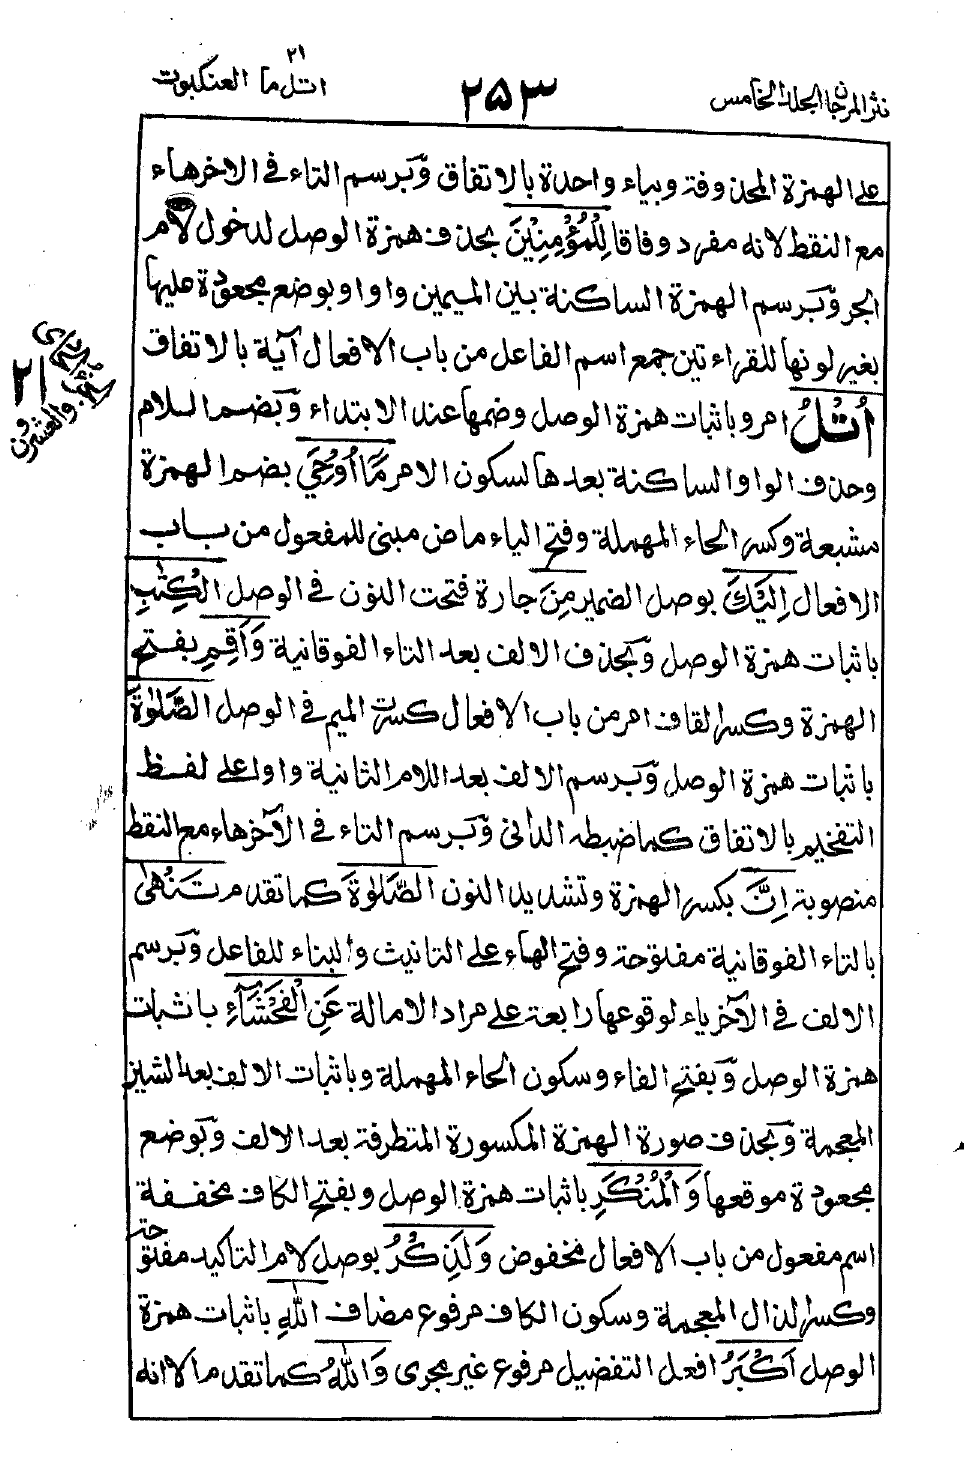 نثر المرجان الجلد الخامس
۲۵۳
۲۱
اتل ما العنكبوت
على الهمزة المحذوفة وبياء واحدة بالاتفاق وَبرسم التاء فى الاخرهاء
مع النقط لانه مفرد وفاقا لِلْمُؤْمِنِيْنَ بحذف همزة الوصل لدخول لام
الجر وَبرسم الهمزة الساكنة بين الميمين واوا وبوضع مجعودة عليها
بغير لونها للقراءتين جمع اسم الفاعل من باب الافعال آية بالاتفاق
اُتْلُ امر وباثبات همزة الوصل وضمها عند الابتداء وَبضم اللام
وحذف الواو الساكنة بعدها لسكون الامر مَآ اُوْحِيَ بضم الهمزة
مشبعة وكسر الحاء المهملة وفتح الياء ماض مبنى للمفعول من باب
الافعال اِلَيْكَ بوصل الضمير مِنَ جارة فتحت النون فى الوصل الْكِتٰبِ
باثبات همزة الوصل وَبحذف الالف بعد التاء الفوقانية وَاَقِمِ بفتح
الهمزة وكسر القاف امر من باب الافعال كسرت الميم فى الوصل الصَّلٰوةَ
باثبات همزة الوصل وَبرسم الالف بعد اللام الثانية واوا على لفظ
التفخيم بالاتفاق كما ضبطه الدانى وَبرسم التاء فى الآخرهاء مع النقط
منصوبة اِنَّ بكسر الهمزة وتشديد النون الصَّلٰوةَ كما تقدم تَنْهٰى
بالتاء الفوقانية مفتوحة وفتح الهاء على التانيث والبناء للفاعل وَبرسم
الالف فى الآخرياء لوقوعها رابعة على مراد الامالة عَنِ الْفَحْشَآءِ باثبات
همزة الوصل وَبفتح الفاء وسكون الحاء المهملة وباثبات الالف بعد الشين
المعجمة وَبحذف صورة الهمزة المكسورة المتطرفة بعد الالف وَبوضع
مجعودة موقعها وَالْمُنْكَرِ باثبات همزة الوصل وبفتح الكاف مخففة
اسم مفعول من باب الافعال مخفوض وَلَذِكْرُ بوصل لام التاكيد مفتوحة
وكسر الذال المعجمة وسكون الكاف مرفوع مضاف اللّٰهِ باثبات همزة
الوصل اَكْبَرُ افعل التفضيل مرفوع غير مجرى وَاللّٰهُ كما تقدم الا انه
۲۱
والعشرون